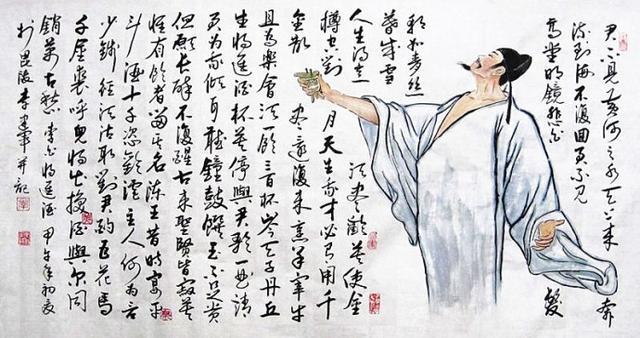 君不見黃河之水天上來奔
流到海不復回君不見
高堂明鏡悲白髮
朝如青絲
暮成雪
人生得意須盡歡莫使金
樽空對月天生我才必有用千
金散盡還復來烹羊宰牛
且為樂會須一飲三百杯岑夫子丹丘
生將進酒杯莫停與君歌一曲請
君為我傾耳聽鐘鼓饌玉不足貴
但願長醉不復醒古來聖賢皆寂莫
惟有飲者留其名陳王昔時宴平
斗酒十千恣歡謔主人何為言
少錢徑須沽取對君酌五花馬
千金裘呼兒將出換酒與爾同
銷萬古愁 李白將進酒 甲午年初夏
於毘陵李軍並記